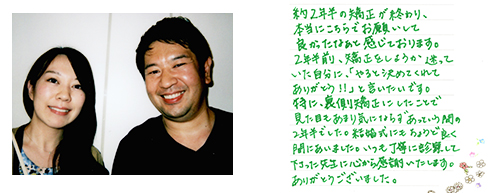 約2年半の矯正が終わり、
本当にこちらでお願いして
良かったなあと感じております。
2年半前、矯正をしようか迷って
いた自分に、「やると決めてくれて
ありがとう!!」と言いたいです。
特に、裏側矯正にしたことで
見た目もあまり気にならずあっという間の
2年半でした。結婚式にもちょうど良く
間にあいました。いつも丁寧に診察して
下さった先生に心から感謝いたします。
ありがとうございました。